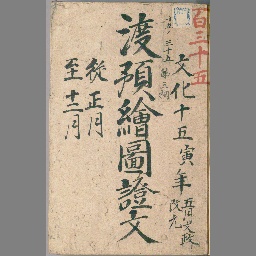 百三十五
文化十五寅年
五月文政
改元
三十五
渡預繪圖證文
從正月
至十二月